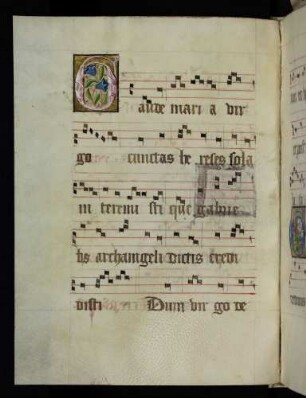 Gaude mari a vir
go cunctas he reses sola
in teremi sti que gabrie
lis archangeli dictis credi
disti Dum vir go de